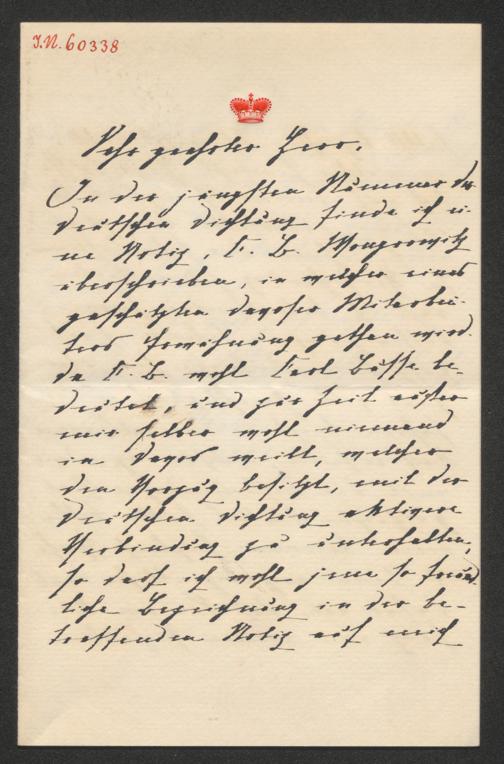 J.N. 60338
Sehr geehrter Herr.
In der jüngsten Nummer der
Deutschen Dichtung finde ich ei-
ne Notiz, C. B. Wongrowitz
überschrieben, in welcher eines
geschätzten Davoser Mitarbei-
ters Erwähnung gethan wird.
Da C. B. wohl Carl Busse be-
deutet, und zur Zeit außer
mir selber wohl niemand
in Davos weilt, welcher
den Vorzug besitzt, mit der
Deutschen Dichtung aktivere
Verbindung zu unterhalten,
so darf ich wohl jene so freund-
liche Bezeichnung in der be-
treffenden Notiz auf mich